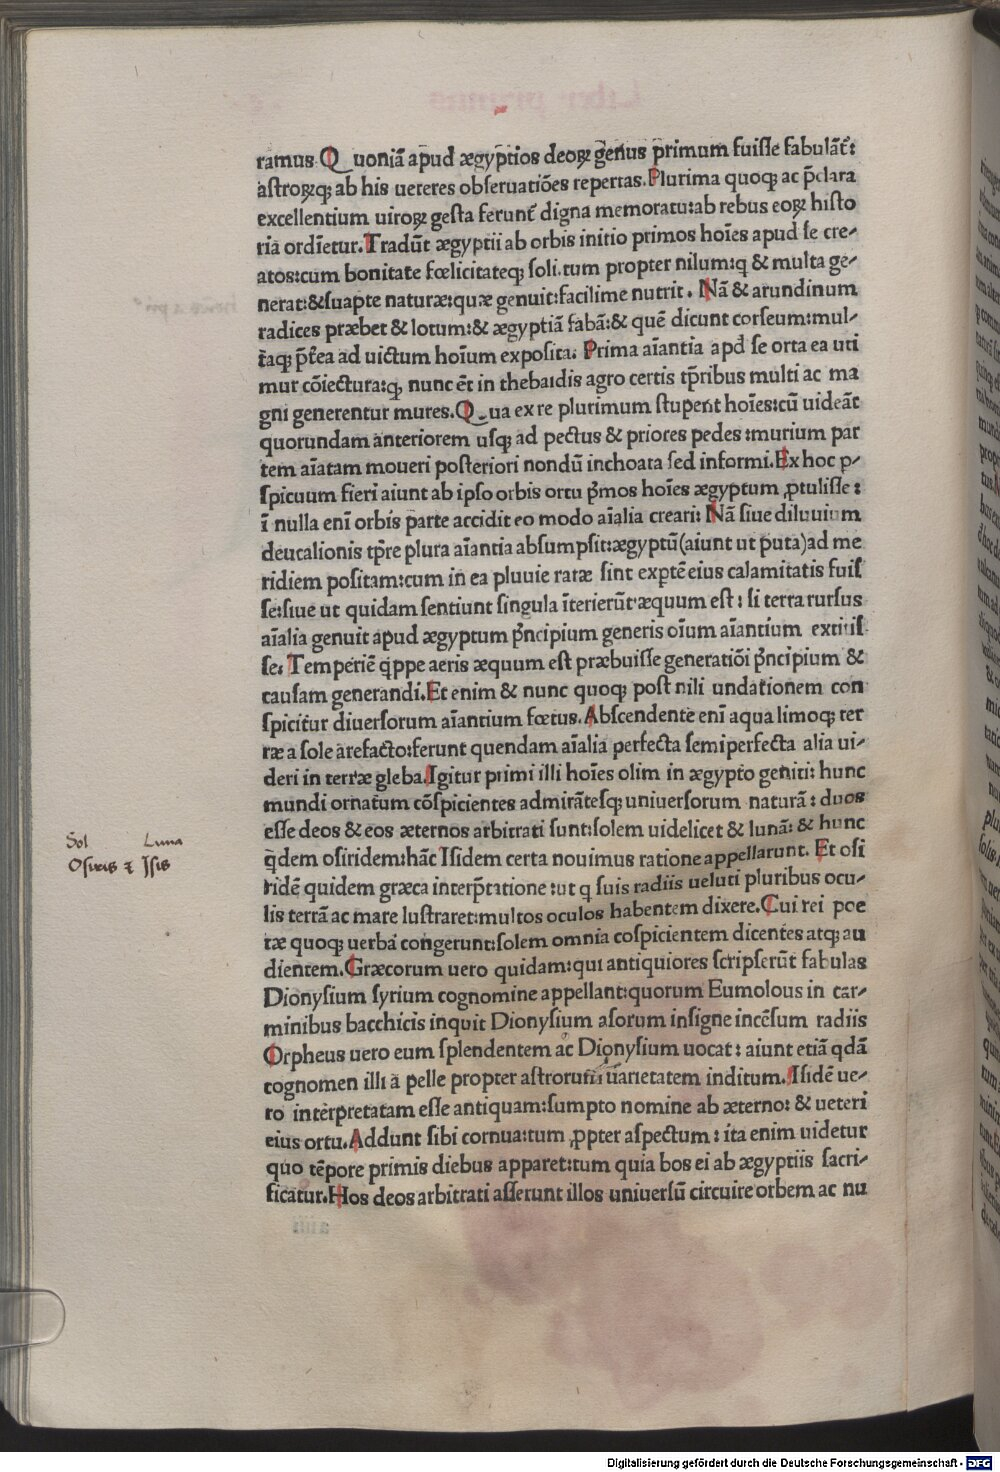 ramus. Quoniā apud ægyptios deoꝝ genus primum fuisse fabulāt̄:
astroꝝq; ab his ueteres obseruatiōes repertas. Plurima quoq; ac p̄clara
excellentium uiroꝝ gesta ferunt̄ digna memoratu: ab rebus eoꝝ histo
ria ordiētur. Tradūt ægyptii ab orbis initio primos hoīes apud se cre-
atos: cum bonitate fœlicitateq; soli. tum propter nilum: q & multa ge-
nerat: & suapte naturæ: quæ genuit: facilime nutrit. Nā & arundinum
radices præbet & lotum: & ægyptiā fabā: & quē dicunt corseum: mul-
taq; p̄t̄ea ad uictum hoīum exposita. Prima aīantia apd̄ se orta ea uti
mur cōiectura: q; nunc ēt in thebaidis agro certis tp̄ribus multi ac ma
gni generentur mures. Qua ex re plurimum stupent hoīes: cū uideāt
quorundam anteriorem usq; ad pectus & priores pedes: murium par
tem aīatam moueri posteriori nondū inchoata sed informi. Ex hoc p-
spicuum fieri aiunt ab ipso orbis ortu p̄mos hoīes ægyptum ꝓtulisse:
ī nulla enī orbis parte accidit eo modo aīalia creari: Nā siue diluuium
deucalionis tp̄re plura aīantia absumpsit: ægyptū (aiunt ut puta) ad me
ridiem positam: cum in ea pluuie raræ sint exptē eius calamitatis fuis
se: siue ut quidam sentiunt singula īterierūt æquum est: si terra rursus
aīalia genuit apud ægyptum p̄ncipium generis oīum aīantium extitis
se: Temperiē q̄ppe aeris æquum est præbuisse generatiōi p̄ncipium &
causam generandi. Et enim & nunc quoq; post nili undationem con
spicitur diuersorum aīantium fœtus. Abscendente enī aqua limoq; ter
ræ a sole arefacto: ferunt quendam aīalia perfecta semiperfecta alia ui-
deri in terræ gleba. Igitur primi illi hoīes olim in ægypto geniti: hunc
mundi ornatum cōspicientes admirātesq; uniuersorum naturā: duos
esse deos & eos æternos arbitrati sunt: solem uidelicet & lunā: & hunc
q̄dem osiridem: hāc Isidem certa nouimus ratione appellarunt. Et osi
ridē quidem græca interp̄tatione: ut q suis radiis ueluti pluribus ocu-
lis terrā ac mare lustraret: multos oculos habentem dixere. Cui rei poe
tæ quoq; uerba congerunt: solem omnia cospicientem dicentes atq; au
dientem. Græcorum uero quidam: qui antiquiores scripserūt fabulas
Dionysium syrium cognomine appellant: quorum Eumolous in car-
minibus bacchicis inquit Dionysium asorum insigne incēsum radiis
Orpheus uero eum splendentem ac Dionysium uocat: aiunt etiā qdā
cognomen illi a pelle propter astrorum uarietatem inditum. Isidē ue-
ro interpretatam esse antiquam: sumpto nomine ab æterno: & ueteri
eius ortu. Addunt sibi cornua: tum ꝓpter aspectum: ita enim uidetur
quo tēpore primis diebus apparet: tum quia bos ei ab ægyptiis sacri-
ficatur. Hos deos arbitrati asserunt illos uniuersū circuire orbem ac nu
Sol Luna
Osiris & Isis
Digitalisierung gefördert durch die Deutsche Forschungsgemeinschaft - DFG